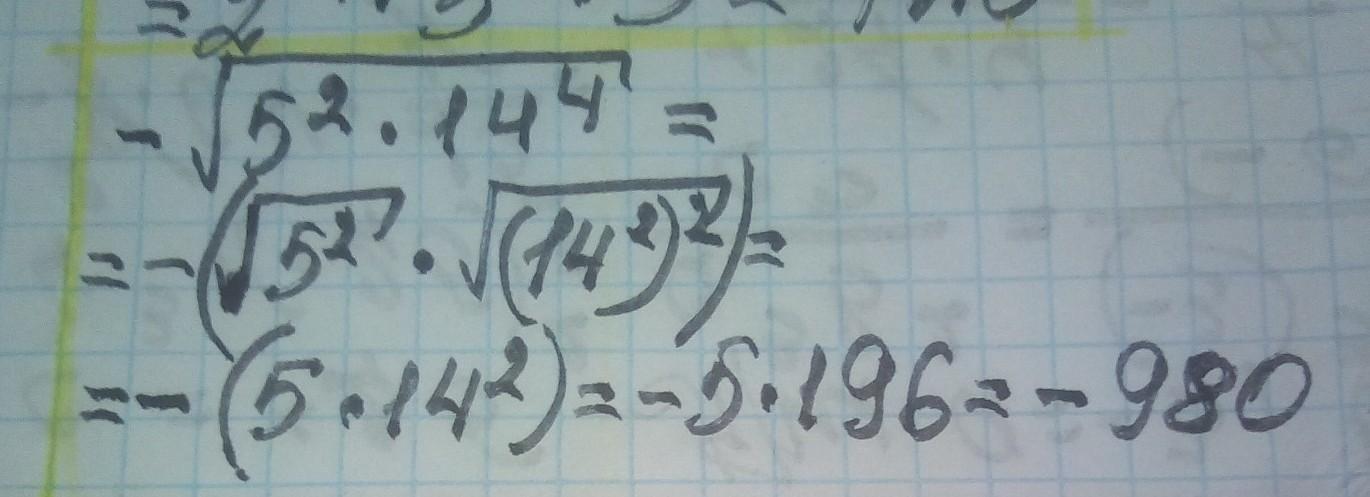 - √5² · 14⁴ =
= - (√5² · √(14²)²) =
= - (5 · 14²) = - 5 · 196 = - 980